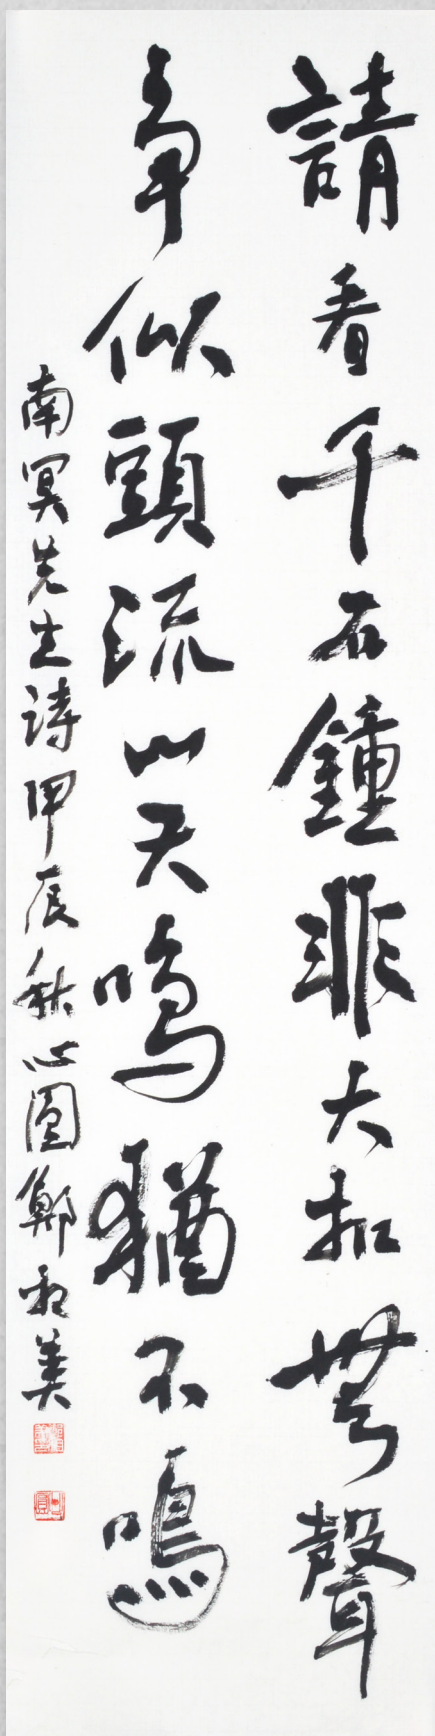 請看千石鍾非大扣無聲
爭似頭流山天鳴猶不鳴
南冥先生詩甲辰秋心圓鄭和美